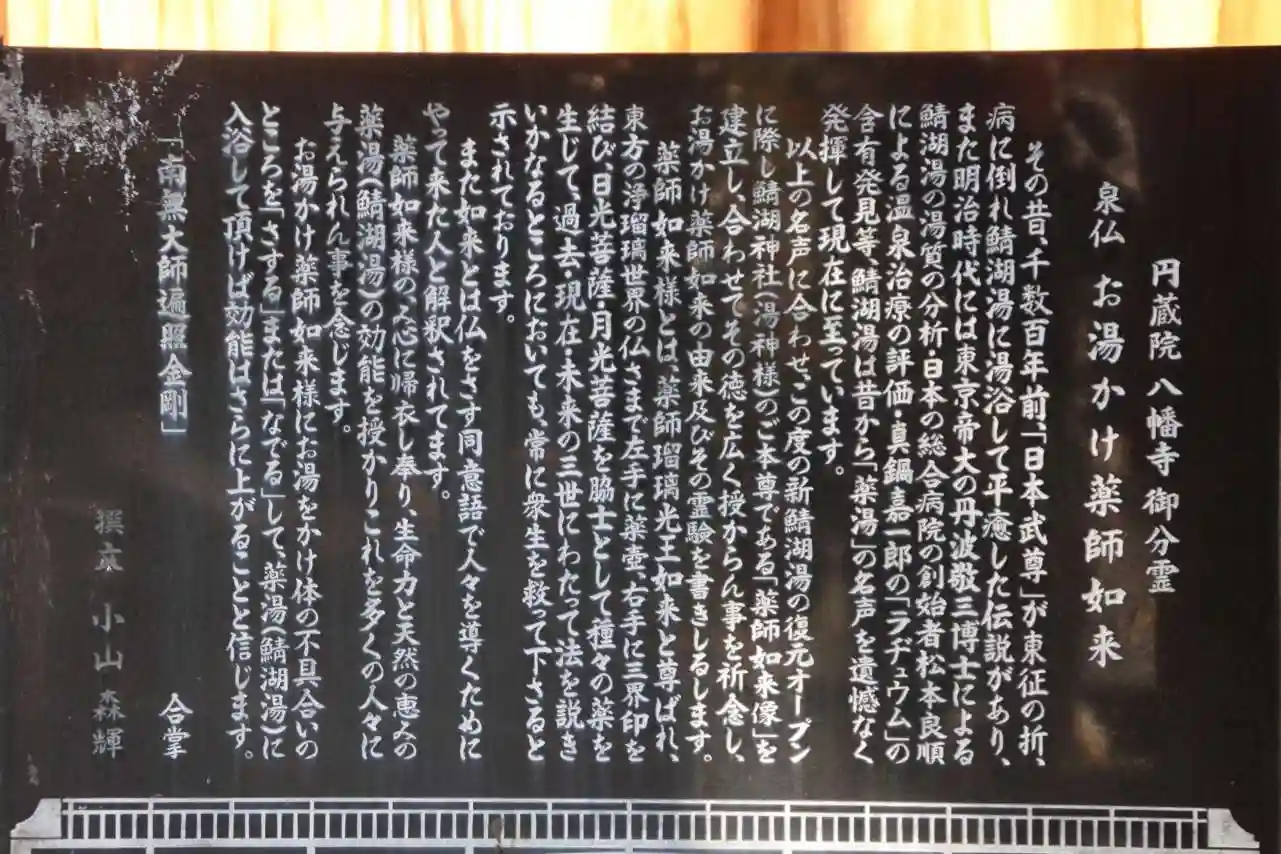 円蔵院 八幡寺御分霊
泉仏 お湯かけ薬師如来
その昔、千数百年前、「日本武尊」が東征の折、
病に倒れ鯖湖湯に湯浴して平癒した伝説があり、
また明治時代には東京帝大の丹波敬三博士による
鯖湖湯の湯質の分析・日本の総合病院の創始者松本良順
による温泉治療の評価・真鍋嘉一郎の「ラヂュウム」の
含有発見等、鯖湖湯は昔から「薬湯」の名声を遺憾なく
発揮して現在に至っています。
以上の名声に合わせ、この度の新鯖湖湯の復元オープン
に際し鯖湖神社(湯神様)のご本尊である「薬師如来像」を
建立し、合わせてその徳を広く授からん事を祈念し、
お湯かけ薬師如来の由来及びその霊験を書きしるします。
薬師如来様とは、薬師瑠璃光王如来と尊ばれ、
東方の浄瑠璃世界の仏さまで左手に薬壺、右手に三界印を
結び、日光菩薩・月光菩薩を脇士として種々の薬を
生じて、過去・現在・未来の三世にわたって法を説き
いかなるところにおいても、常に衆生を救って下さると
示されております。
また如来とは仏をさす同意語で人々を導くために
やって来た人と解釈されてます。
薬師如来様の、心に帰衣し奉り、生命力と天然の恵みの
薬湯(鯖湖湯)の効能を授かりこれを多くの人々に
与えられん事を念じます。
お湯かけ薬師如来様にお湯をかけ体の不具合いの
ところを「さする」または「なでる」して、薬湯(鯖湖湯)に
入浴して頂けば効能はさらに上がることと信じます。
「南無大師遍照金剛」 合掌
撰文 小山森輝